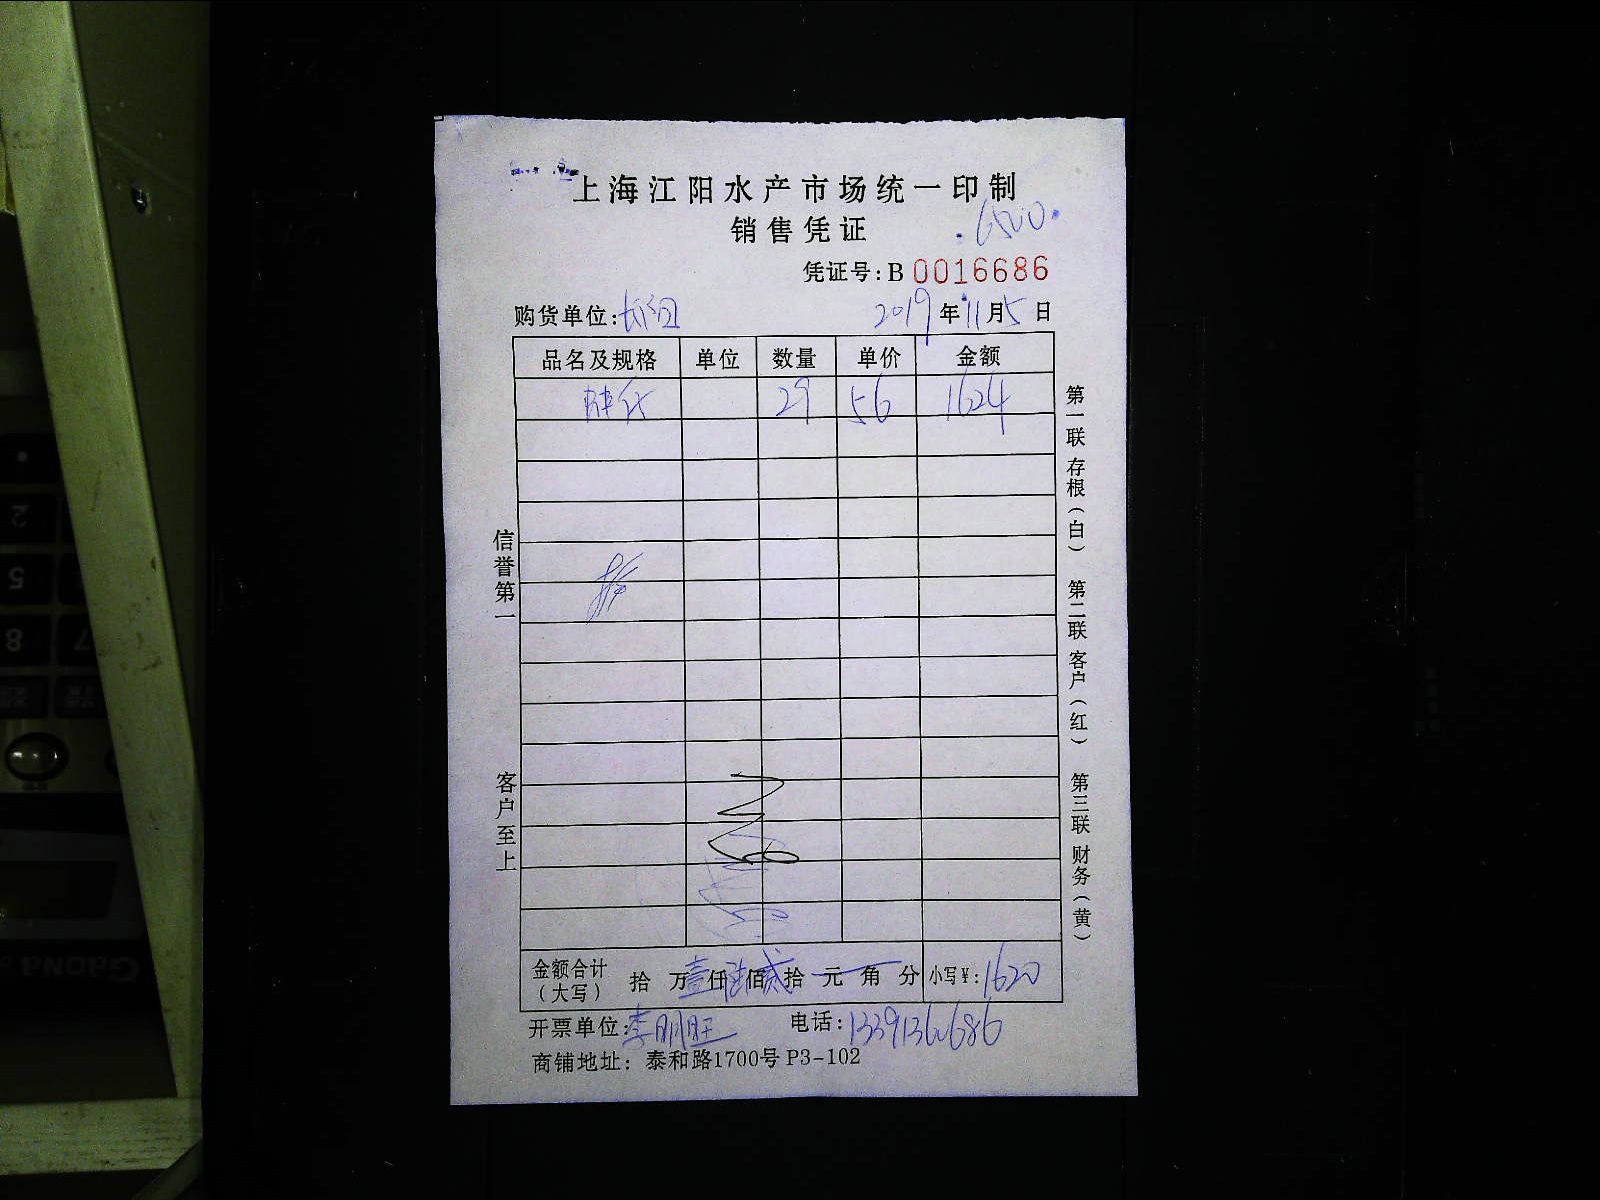 上海江阳水产市场统一印制
销售凭证
6500
凭证号:B 0016686
购货单位:
2019年11月5日
品名及规格 单位 数量 单价 金额
29 56 1624
信誉第一
客户至上
第一联 存根(白) 第二联 客户(红) 第三联 财务(黄)
金额合计(大写) 拾 万壹仟陆佰贰拾 元 角 分 小写¥:1620
开票单位:李明旺 电话:13391360686
商铺地址: 泰和路1700号 P3-102
2
5
8
7